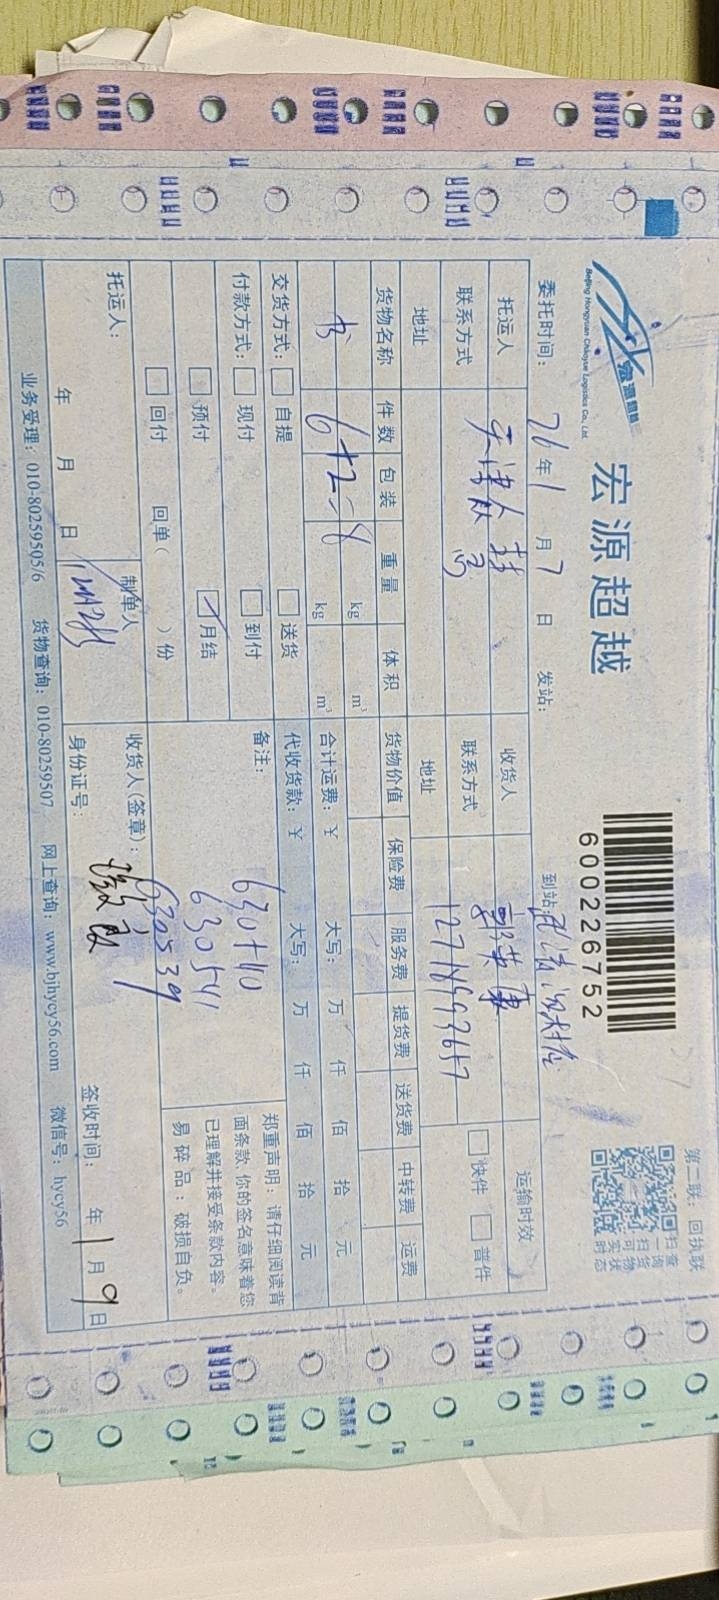 宏源超越
Beijing Hongyuan Chaoyue Logistics Co., Ltd.
宏源超越
600226752
第二联：回执联
扫一扫可实时
查询货物状态
委托时间： 26年1月7日 发站： 到站：
托运人 天津 收货人 郭英康 运输时效
联系方式 联系方式 快件 普件
地址 地址
货物名称 件数 包装 重量 体积 货物价值 保险费 服务费 提货费 送货费 中转费 运费
书 6+2=8 kg m³
kg m³ 合计运费：￥ 大写： 万 仟 佰 拾 元
交货方式： 自提 送货 代收货款：￥ 大写： 万 仟 佰 拾 元
付款方式： 现付 到付 备注： 630540
预付 月结 630541
回付 回单（ ）份 630539
郑重声明：请仔细阅读背
面条款，你的签名意味着您
已理解并接受条款内容。
易碎品：破损自负。
托运人： 制单人 收货人（签章）：
年 月 日 身份证号： 签收时间： 年1月9日
业务受理：010-80259505/6 货物查询：010-80259507 网上查询：www.bjhycy56.com 微信号：hycy56